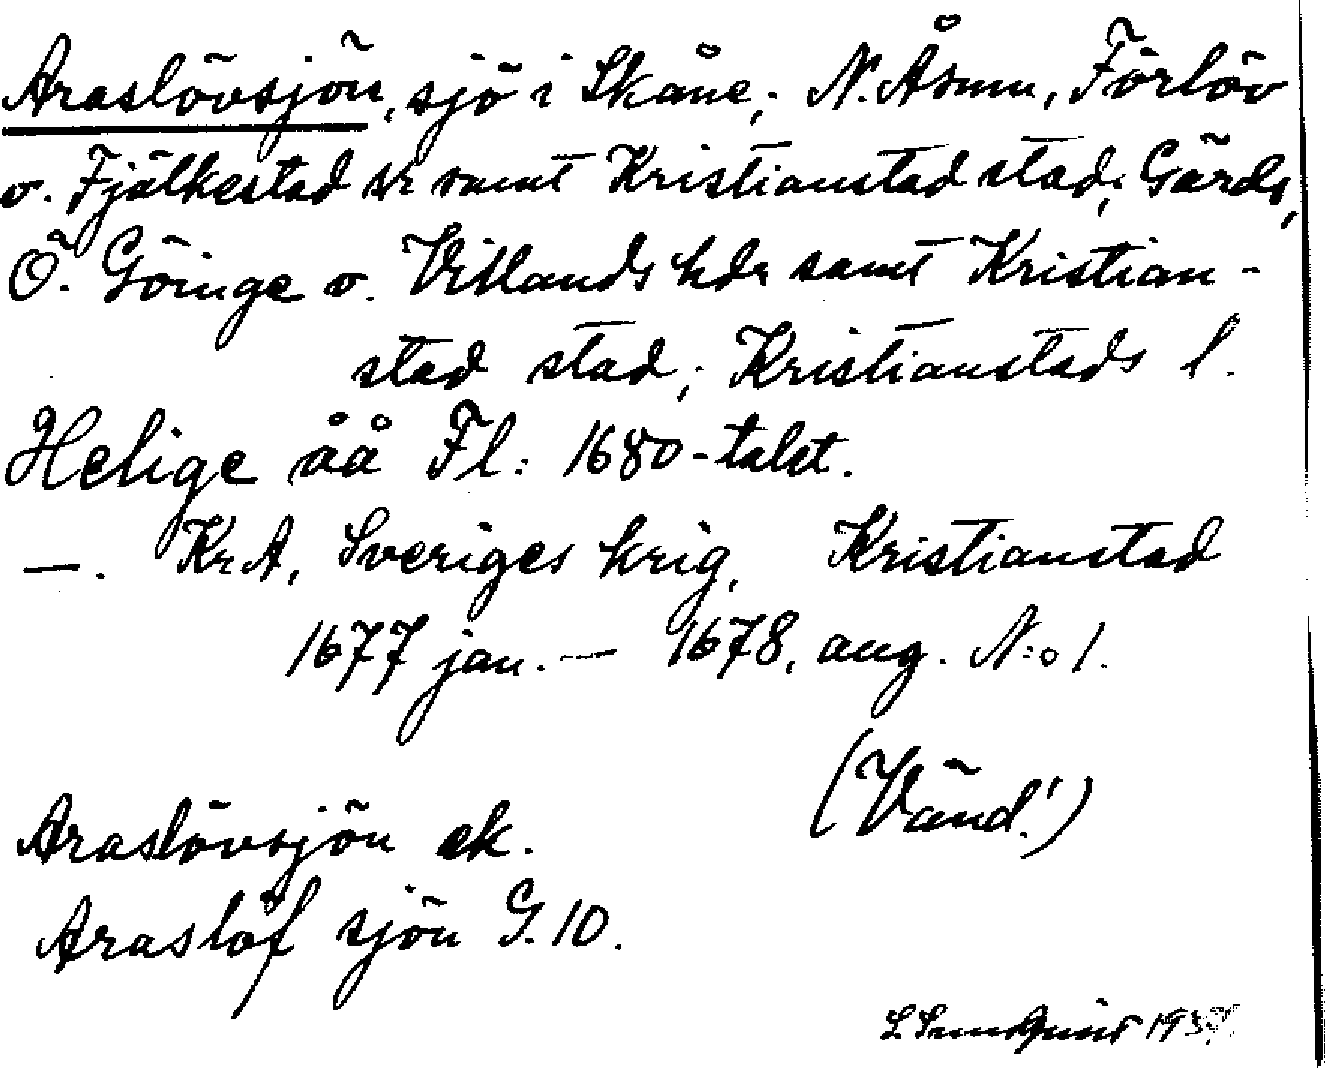 Araslövsjön, sjö i Skåne; N. Åsum, Förlöv
o. Fjälkestad snr samt Kristianstad stad; Gärds,
Ö. Göinge o. Villands hdr samt Kristian-
stad stad; Kristianstads l.
Helige åå Fl: 1680-talet.
—. KrA, Sveriges krig, Kristianstad
1677 jan. — 1678, aug. N:o 1.
(Vänd!)
Araslövsjön ek.
Araslöf sjön G. 10.